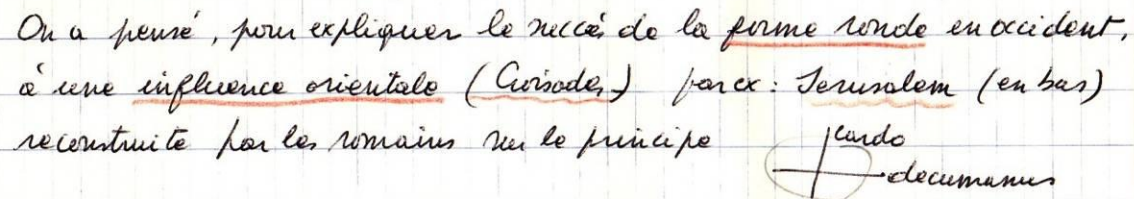 On a pensé, pour expliquer le succès de la forme ronde en occident,
à une influence orientale (Croisades) par ex : Jerusalem (en bas)
reconstruite par les romains sur le principe cardo
decumanus